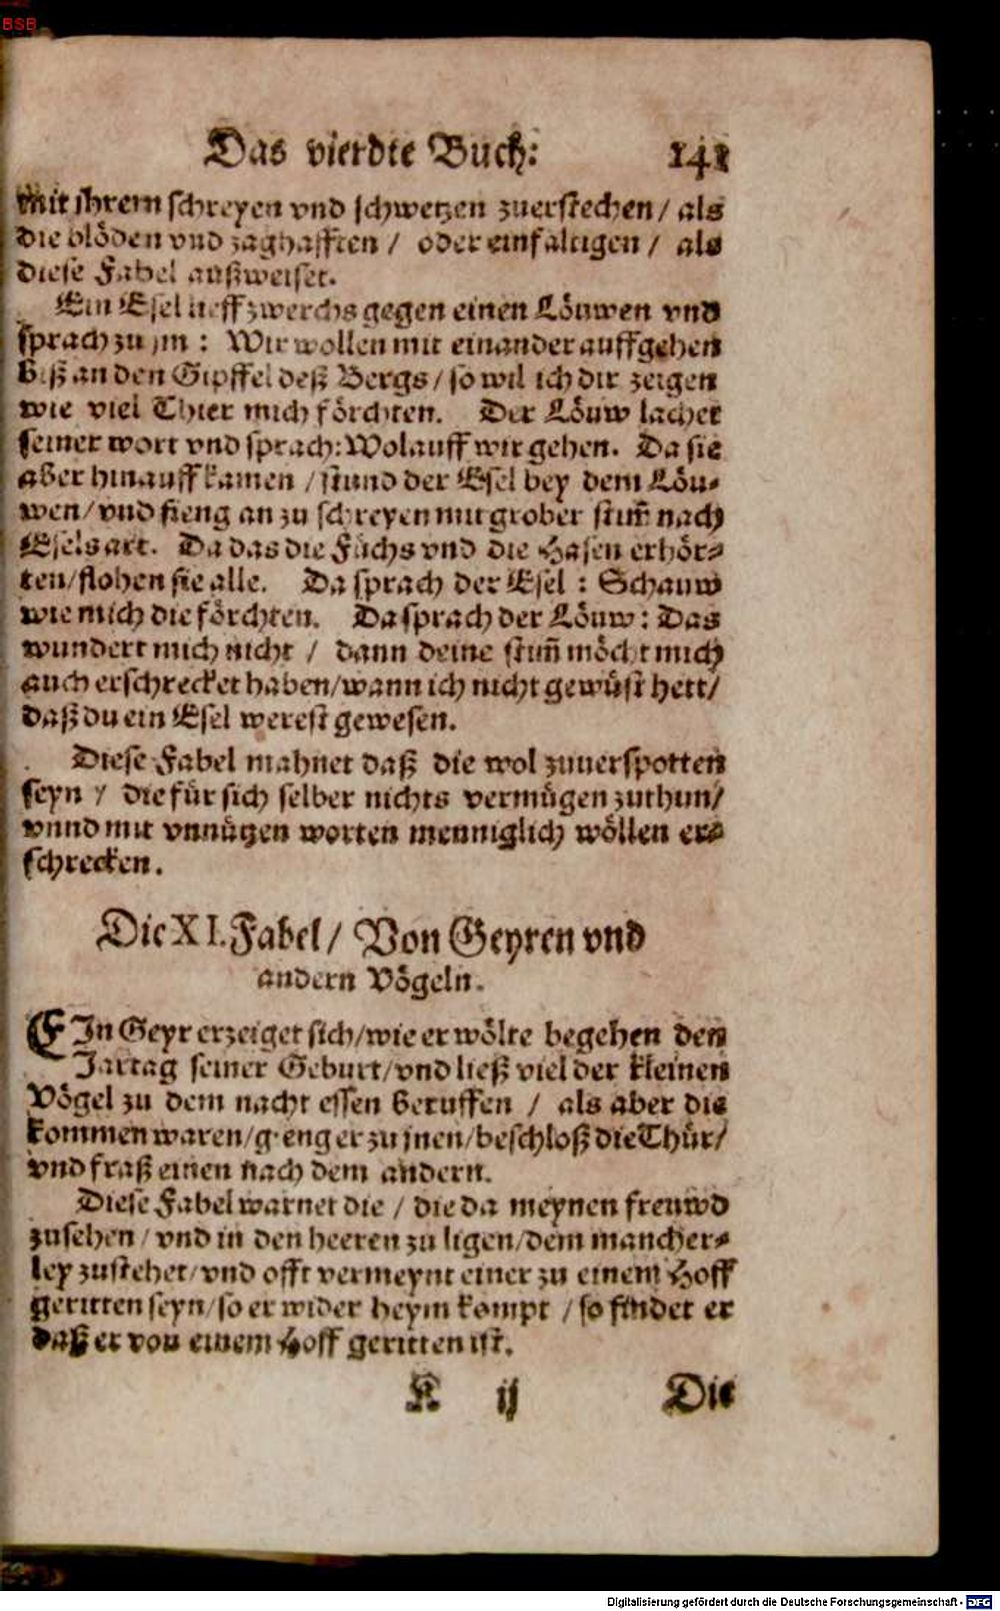 BSB
Das vierdte Buch: 141
mit ihrem schreyen vnd schwetzen zuerstechen / als
die blöden vnd zaghafften / oder einfaltigen / als
diese Fabel außweiset.
Ein Esel lieff zwerchs gegen einen Löuwen vnd
sprach zu jm : Wir wollen mit einander auffgehen
biß an den Gipffel deß Bergs / so wil ich dir zeigen
wie viel Thier mich förchten. Der Löuw lachet
seiner wort vnd sprach: Wolauff wir gehen. Da sie
aber hinauff kamen / stund der Esel bey dem Löu-
wen / vnd fieng an zu schreyen mit grober stim̃ nach
Esels art. Da das die Füchs vnd die Hasen erhör-
ten / flohen sie alle. Da sprach der Esel : Schauw
wie mich die förchten. Da sprach der Löuw : Das
wundert mich nicht / dann deine stim̃ möcht mich
auch erschrecket haben / wann ich nicht gewüst hett /
daß du ein Esel werest gewesen.
Diese Fabel mahnet daß die wol zuuerspotten
seyn / die für sich selber nichts vermügen zuthun /
vnnd mit vnnützen worten menniglich wöllen er-
schrecken.
Die XI. Fabel / Von Geyren vnd
andern Vögeln.
EIn Geyr erzeiget sich / wie er wölte begehen den
Jartag seiner Geburt / vnd ließ viel der kleinen
Vögel zu dem nacht essen beruffen / als aber die
kommen waren / gieng er zu jnen / beschloß die Thür /
vnd fraß einen nach dem andern.
Diese Fabel warnet die / die da meynen freuwd
zusehen / vnd in den heeren zu ligen / dem mancher-
ley zustehet / vnd offt vermeynt einer zu einem Hoff
geritten seyn / so er wider heym kompt / so findet er
daß er von einem Hoff geritten ist.
K ij Die
Digitalisierung gefördert durch die Deutsche Forschungsgemeinschaft - DFG